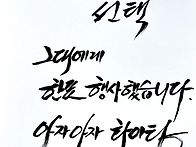 선택
그대에게
한표 행사했습니다.
아자아자 화이팅